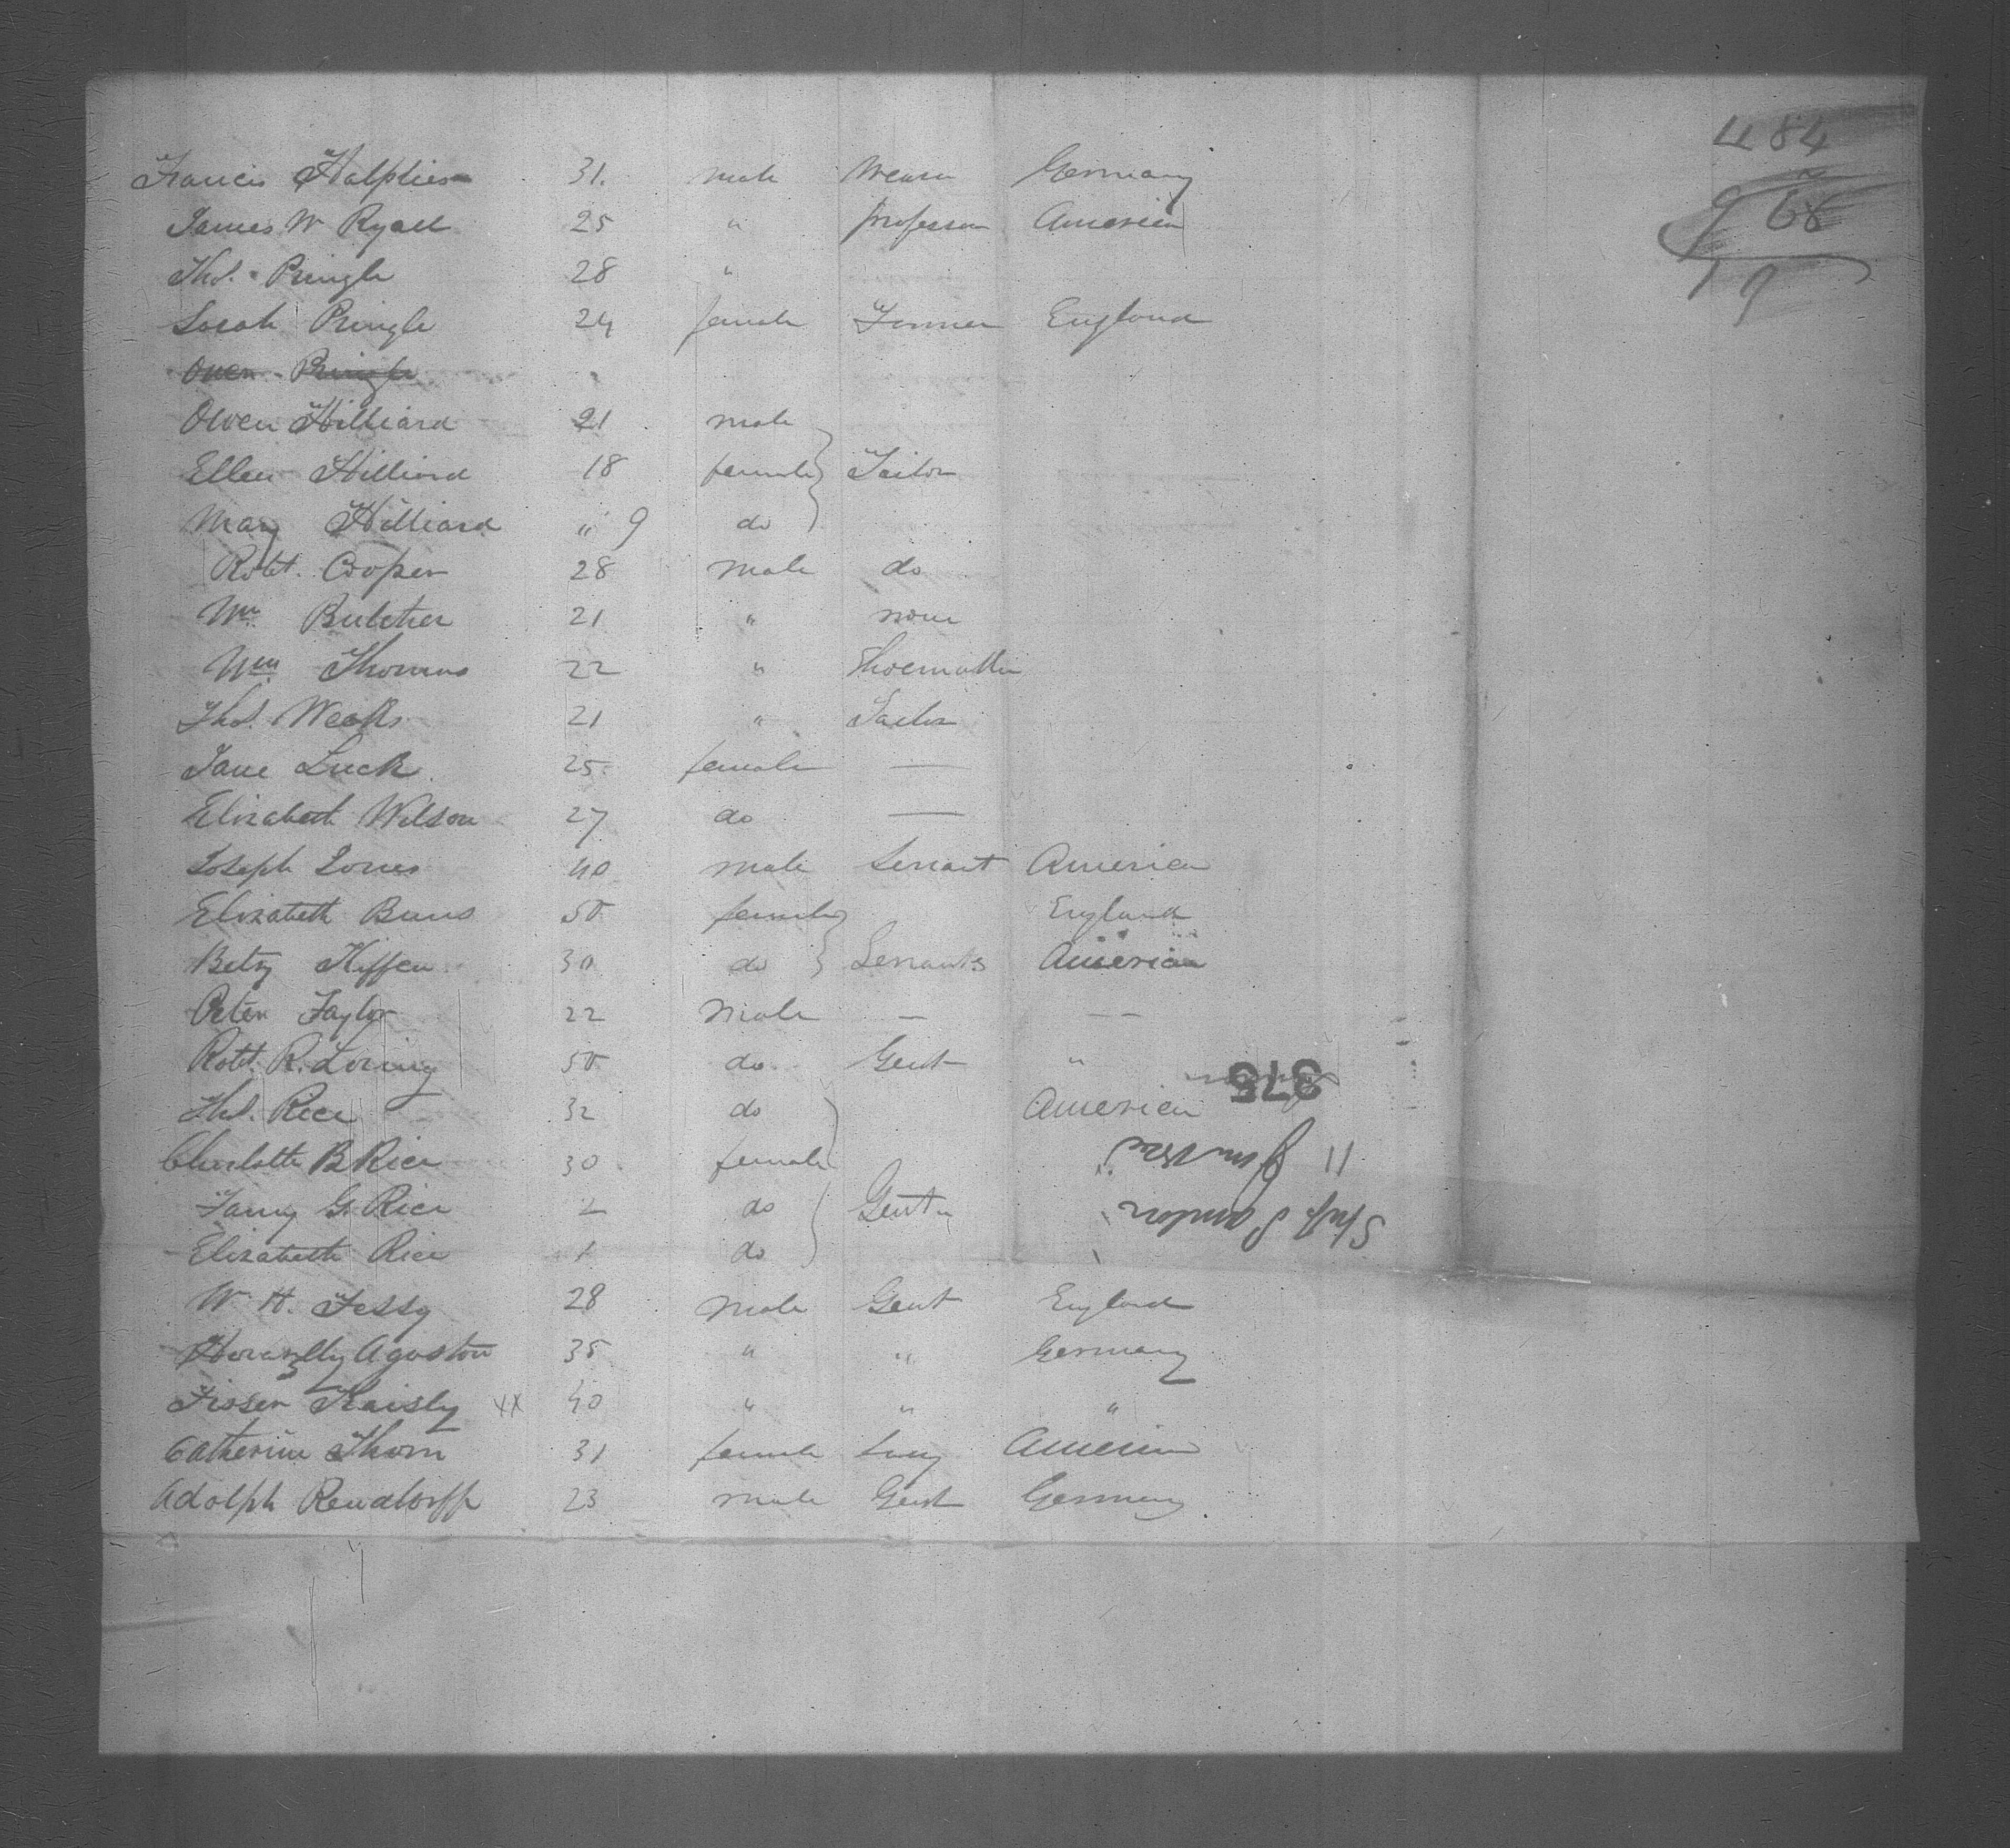 484
968
19
Francis Halplien 31. male Weaver Germany
James W Ryall 25 " professor America
Thos. Pringle 28 "
Sarah Pringle 24 female Farmer England
Owen Pringle
Owen Hilliard 21 male
Ellen Hilliard 18 female Tailor
Mary Hilliard " 9 do
Robt. Cooper 28 male do
Wm Butcher 21 " none
Wm Thomas 22 " Shoemaker
Thos. Weaks 21 " Tailor
Jane Luck 25 female —
Elizabeth Wilson 27 do —
Joseph Jones 40 male Servant America
Elizabeth Buns 50 female England
Betsy Kiffen 30 do Servants America
Peter Taylor 22 Male — — —
Robt. R. Loring 50 do Gent "
Thos. Rice 32 do America
Charlotte B Rice 30 female
Fanny G. Rice 2 do Gent
Elizabeth Rice 1 do
W. H. Tessy 28 Male Gent England
Agoston 35 " " Germany
Fisser xx 40 " " "
Catherine Thorn 31 female Lady America
Adolph Rendtorff 23 male Gent Germany
375
Ship
11